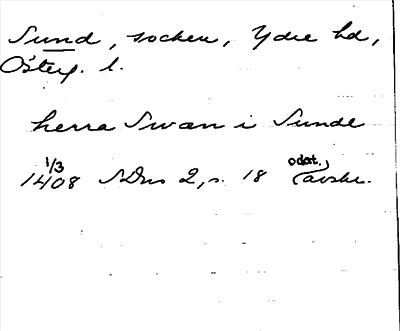 Sund, socken, Ydre hd,
Österg. l.
herra Swan i Sunde
1/3 odat.
1408 SDns 2, s. 18 (avskr.